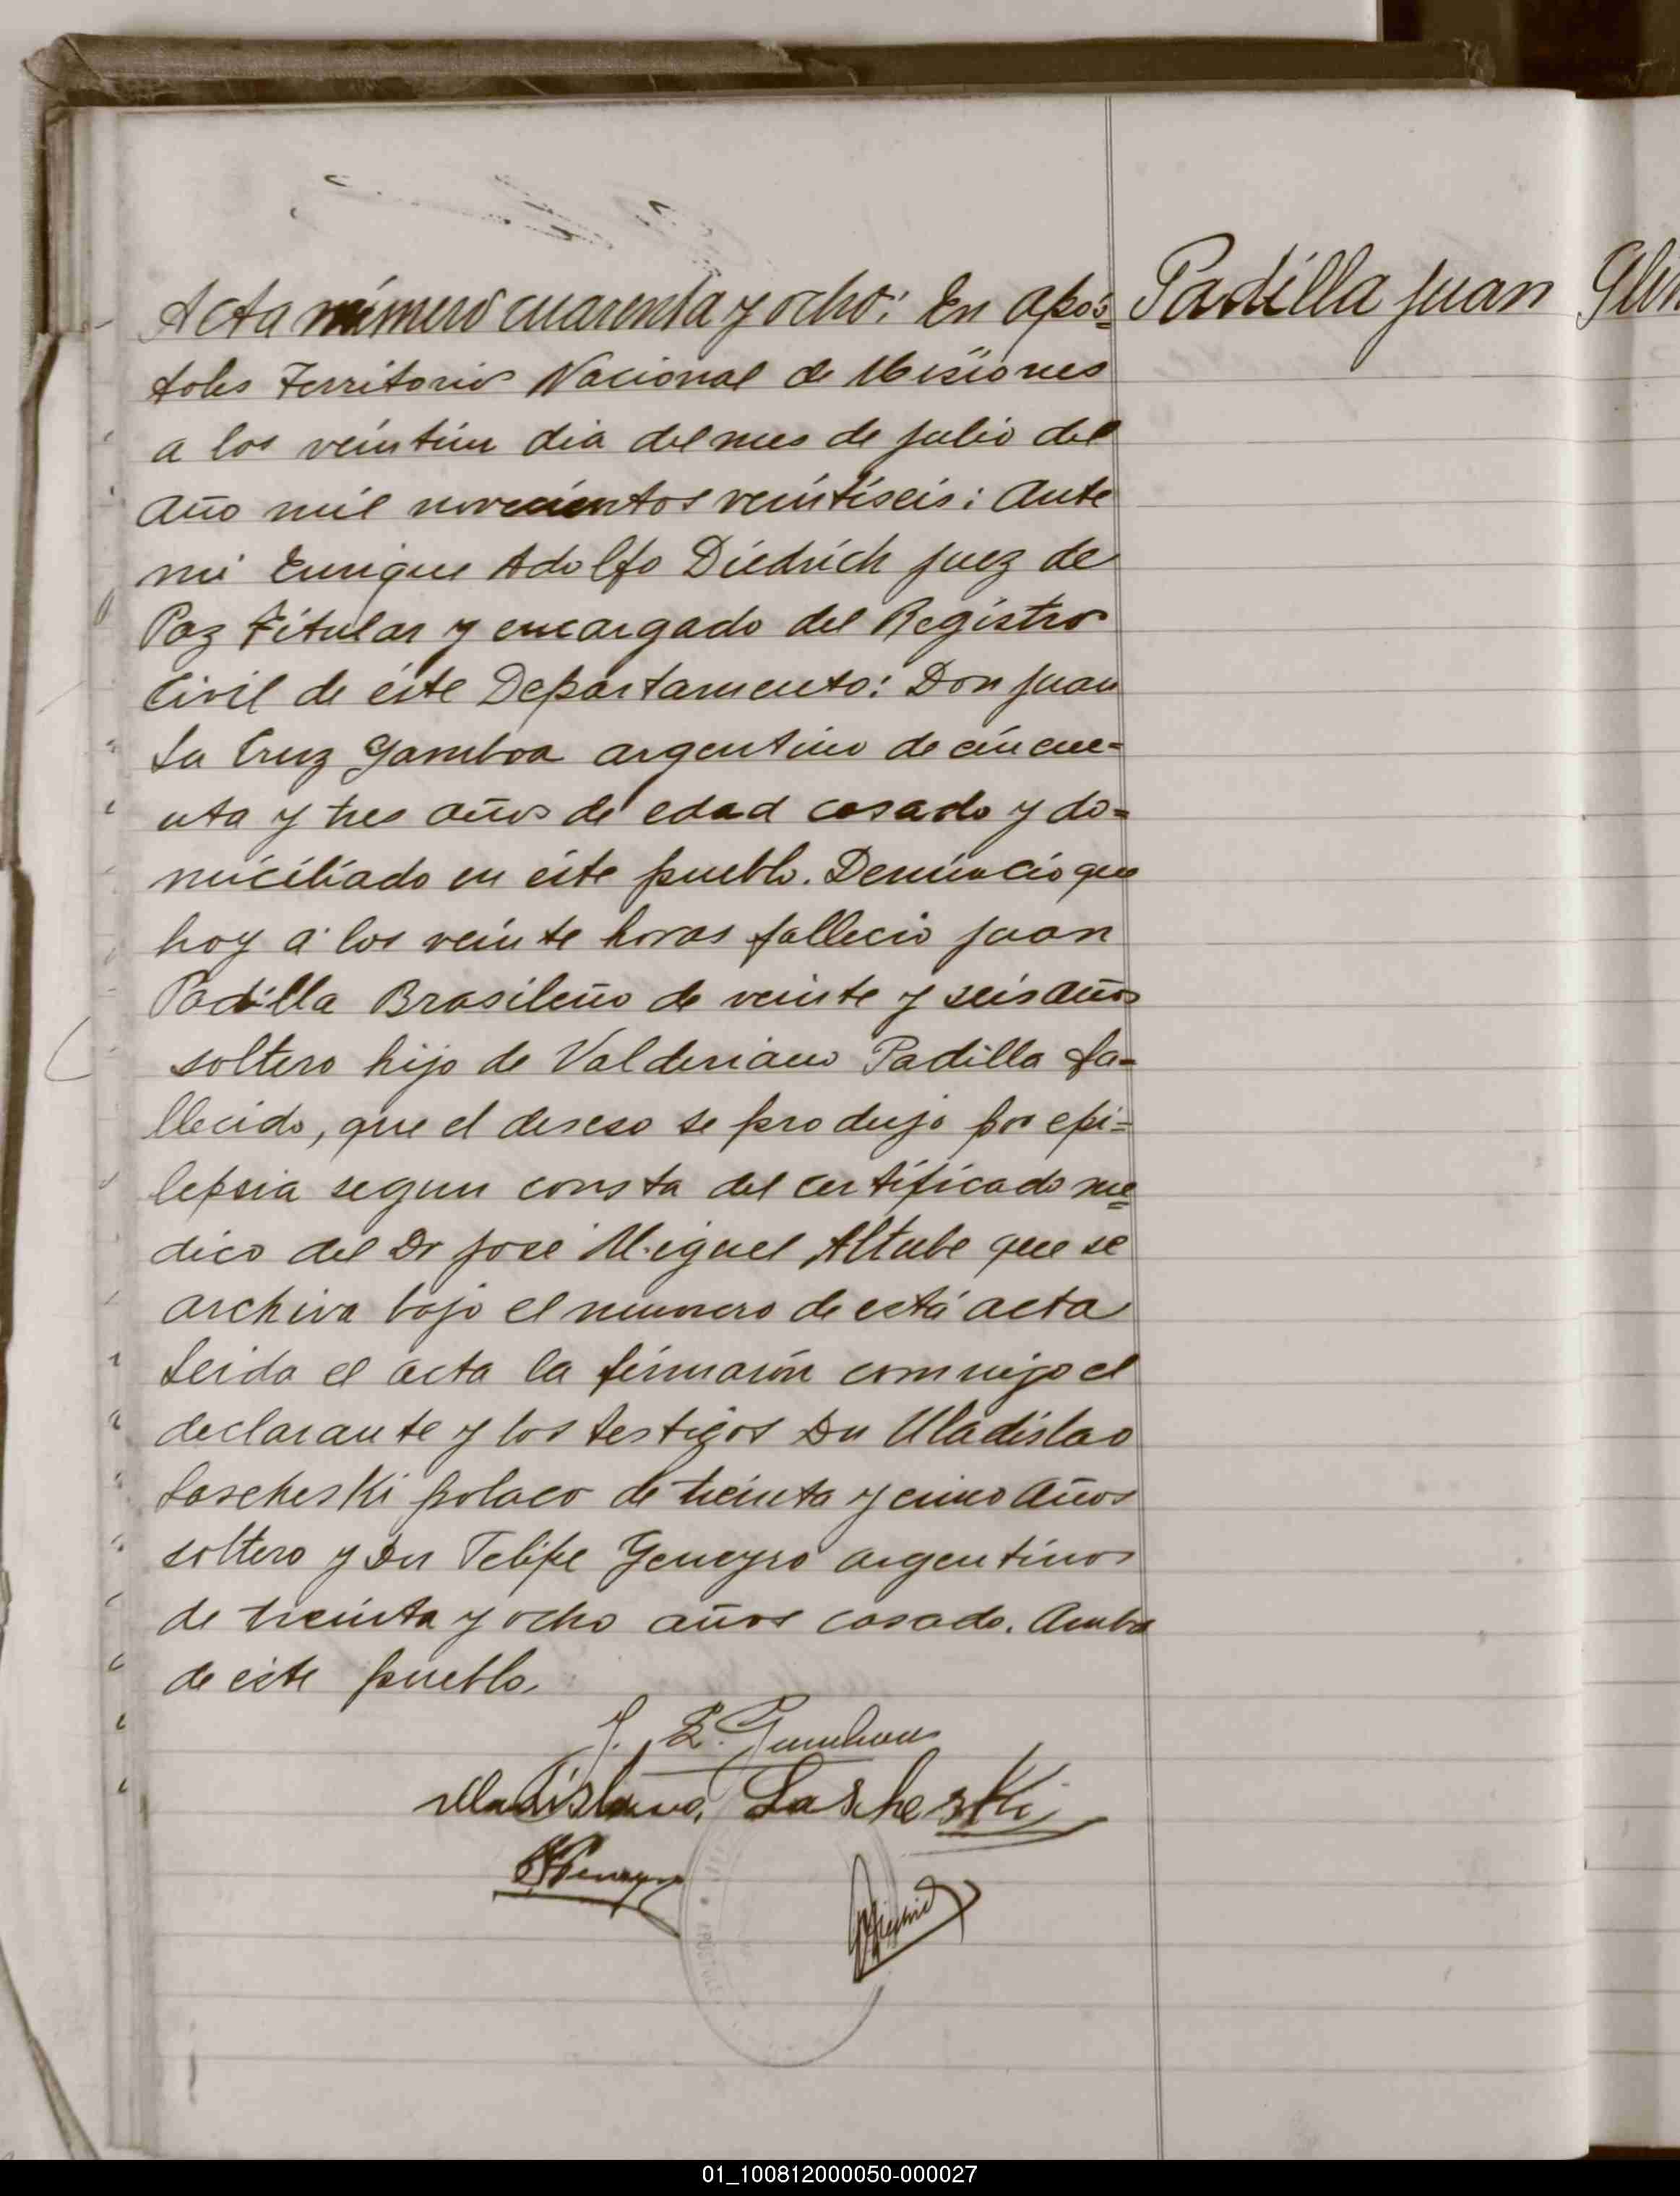 Acta número cuarenta y ocho: En após=
toles Territorio Nacional de Misiones
a los veintiun dia del mes de julio del
año mil novecientos veintiseis: Ante
mi Enrique Adolfo Diedrich juez de
Paz Titular y encargado del Registro
Civil de éste Departamento: Don Juan
La Cruz Gamboa argentino de cincue=
nta y tres años de edad casado y do=
miciliado en éste pueblo. Denúncio que
hoy a los veinte horas fallecio Juan
Padilla Brasileño de veinte y seis años
soltero hijo de Valderiano Padilla fa=
llecido, que el deseso se produjo por epi=
lepsia segun consta del certificado me=
dico del Dr José Miguel Altube que se
archiva bajo el numero de está acta
Leida el acta la firmarón conmigo el
declarante y los testigos Dn Uladislao
Lascheski polaco de treinta y cinco años
soltero y Dn Felipe Geneyro argentinos
de treinta y ocho años casado. Ambo
de éste pueblo.
Padilla Juan
J. L. Gamboa
Uladislavo Lascheski
APOSTOLES
01_100812000050-000027